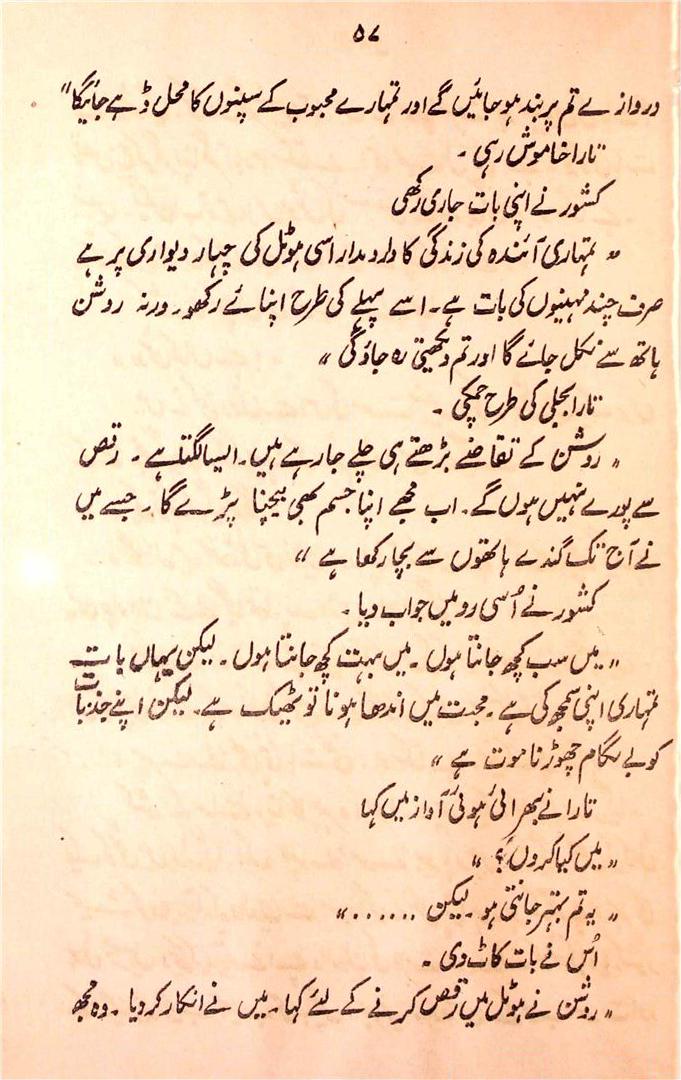 ۵۷
دروازے تم پر بند ہو جائیں گے اور تمہارے محبوب کے سپنوں کا محل ڈھے جائیگا"
تارا خاموش رہی ۔
کشور نے اپنی بات جاری رکھی
" تمہاری آئندہ کی زندگی کا دارومدار اسی ہوٹل کی چہار دیواری پر ہے
صرف چند مہینوں کی بات ہے۔ اسے پہلے کی طرح اپنائے رکھو۔ ورنہ روشن
ہاتھ سے نکل جائے گا اور تم دیکھتی رہ جاؤ گی "
تارا بجلی کی طرح چمکی ۔
" روشن کے تقاضے بڑھتے ہی چلے جا رہے ہیں۔ ایسا لگتا ہے ۔ رقص
سے پورے نہیں ہوں گے۔ اب مجھے اپنا جسم بھی بیچنا پڑے گا۔ جسے میں
نے آج تک گندے ہاتھوں سے بچا رکھا ہے "
کشور نے اُسی رو میں جواب دیا ۔
" میں سب کچھ جانتا ہوں ۔ میں بہت کچھ جانتا ہوں ۔ لیکن یہاں بات
تمہاری اپنی سمجھ کی ہے ۔ محبت میں اندھا ہونا تو ٹھیک ہے۔ لیکن اپنے جذبات
کو بے لگام چھوڑنا موت ہے "
تارا نے بھرائی ہوئی آواز میں کہا
" میں کیا کروں؟ "
" یہ تم بہتر جانتی ہو۔ لیکن ......"
اُس نے بات کاٹ دی ۔
" روشن نے ہوٹل میں رقص کرنے کے لئے کہا۔ میں نے انکار کر دیا ۔ وہ مجھ